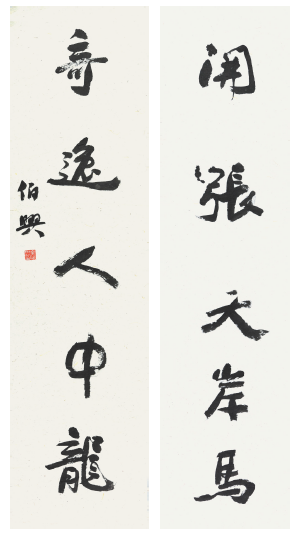 開張天岸馬
奇逸人中龍
伯興